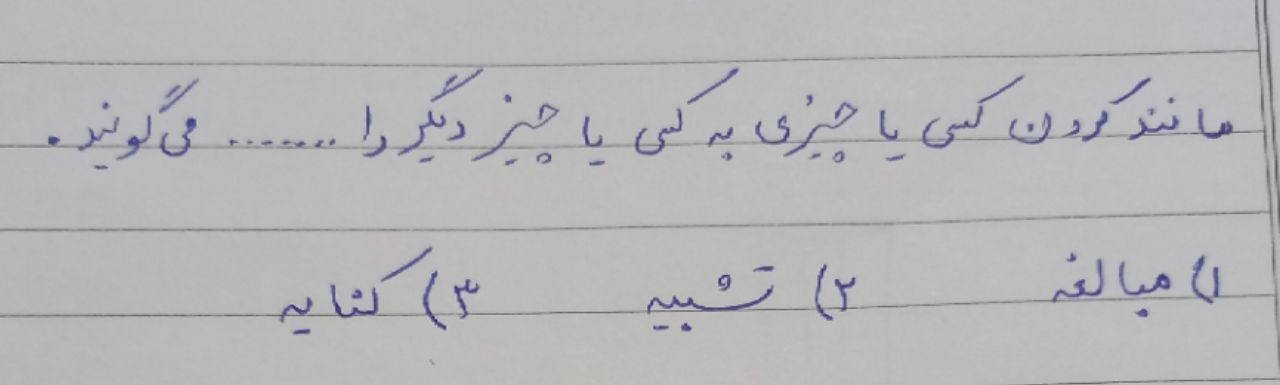 مانند کردن کسی یا چیزی به کسی یا چیز دیگر را ....... می‌گویند.
۱) مبالغه ۲) تشبیه ۳) کنایه